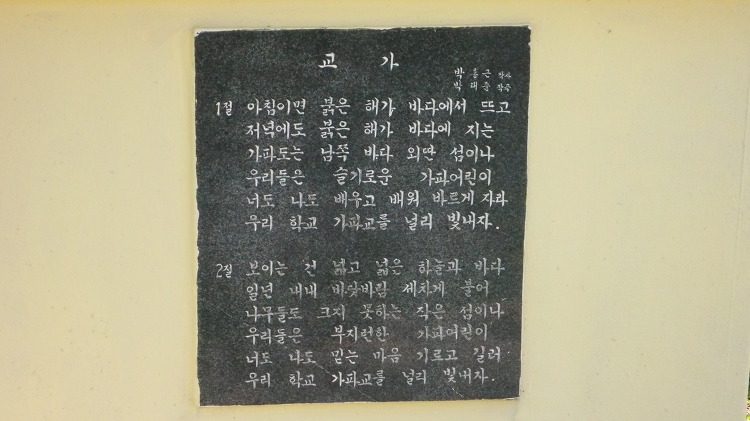 교 가
박홍근 작사
박재훈 작곡
1절 아침이면 붉은 해가 바다에서 뜨고
저녁에도 붉은 해가 바다에 지는
가파도는 남쪽 바다 외딴 섬이나
우리들은 슬기로운 가파어린이
너도 나도 배우고 배워 바르게 자라
우리 학교 가파교를 널리 빛내자.
2절 보이는 건 넓고 넓은 하늘과 바다
일년 내내 바닷바람 세차게 불어
나무들도 크지 못하는 작은 섬이나
우리들은 부지런한 가파어린이
너도 나도 믿는 마음 기르고 길러
우리 학교 가파교를 널리 빛내자.